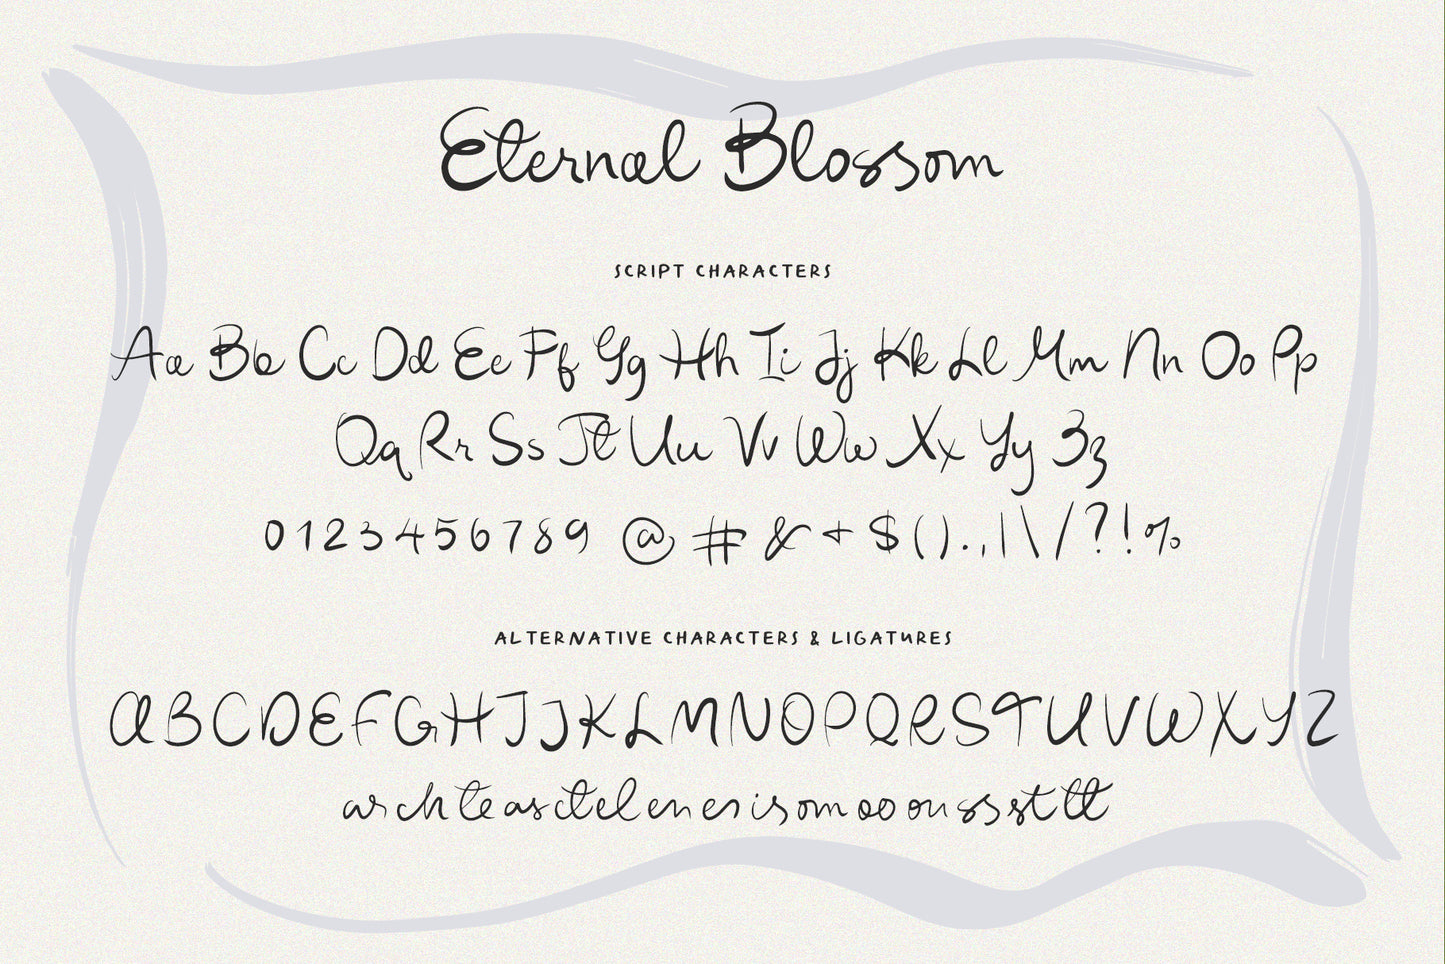 Eternal Blossom
SCRIPT CHARACTERS
Aa Bb Cc Dd Ee Ff Gg Hh Ii Jj Kk Ll Mm Nn Oo Pp
Qq Rr Ss Tt Uu Vv Ww Xx Yy Zz
0123456789 @ # & + $ ( ) . , | \ / ? ! %
ALTERNATIVE CHARACTERS & LIGATURES
A B C D E F G H I J K L M N O P Q R S T U V W X Y Z
ar ch te as ct el en er is om oo ou ss st tt